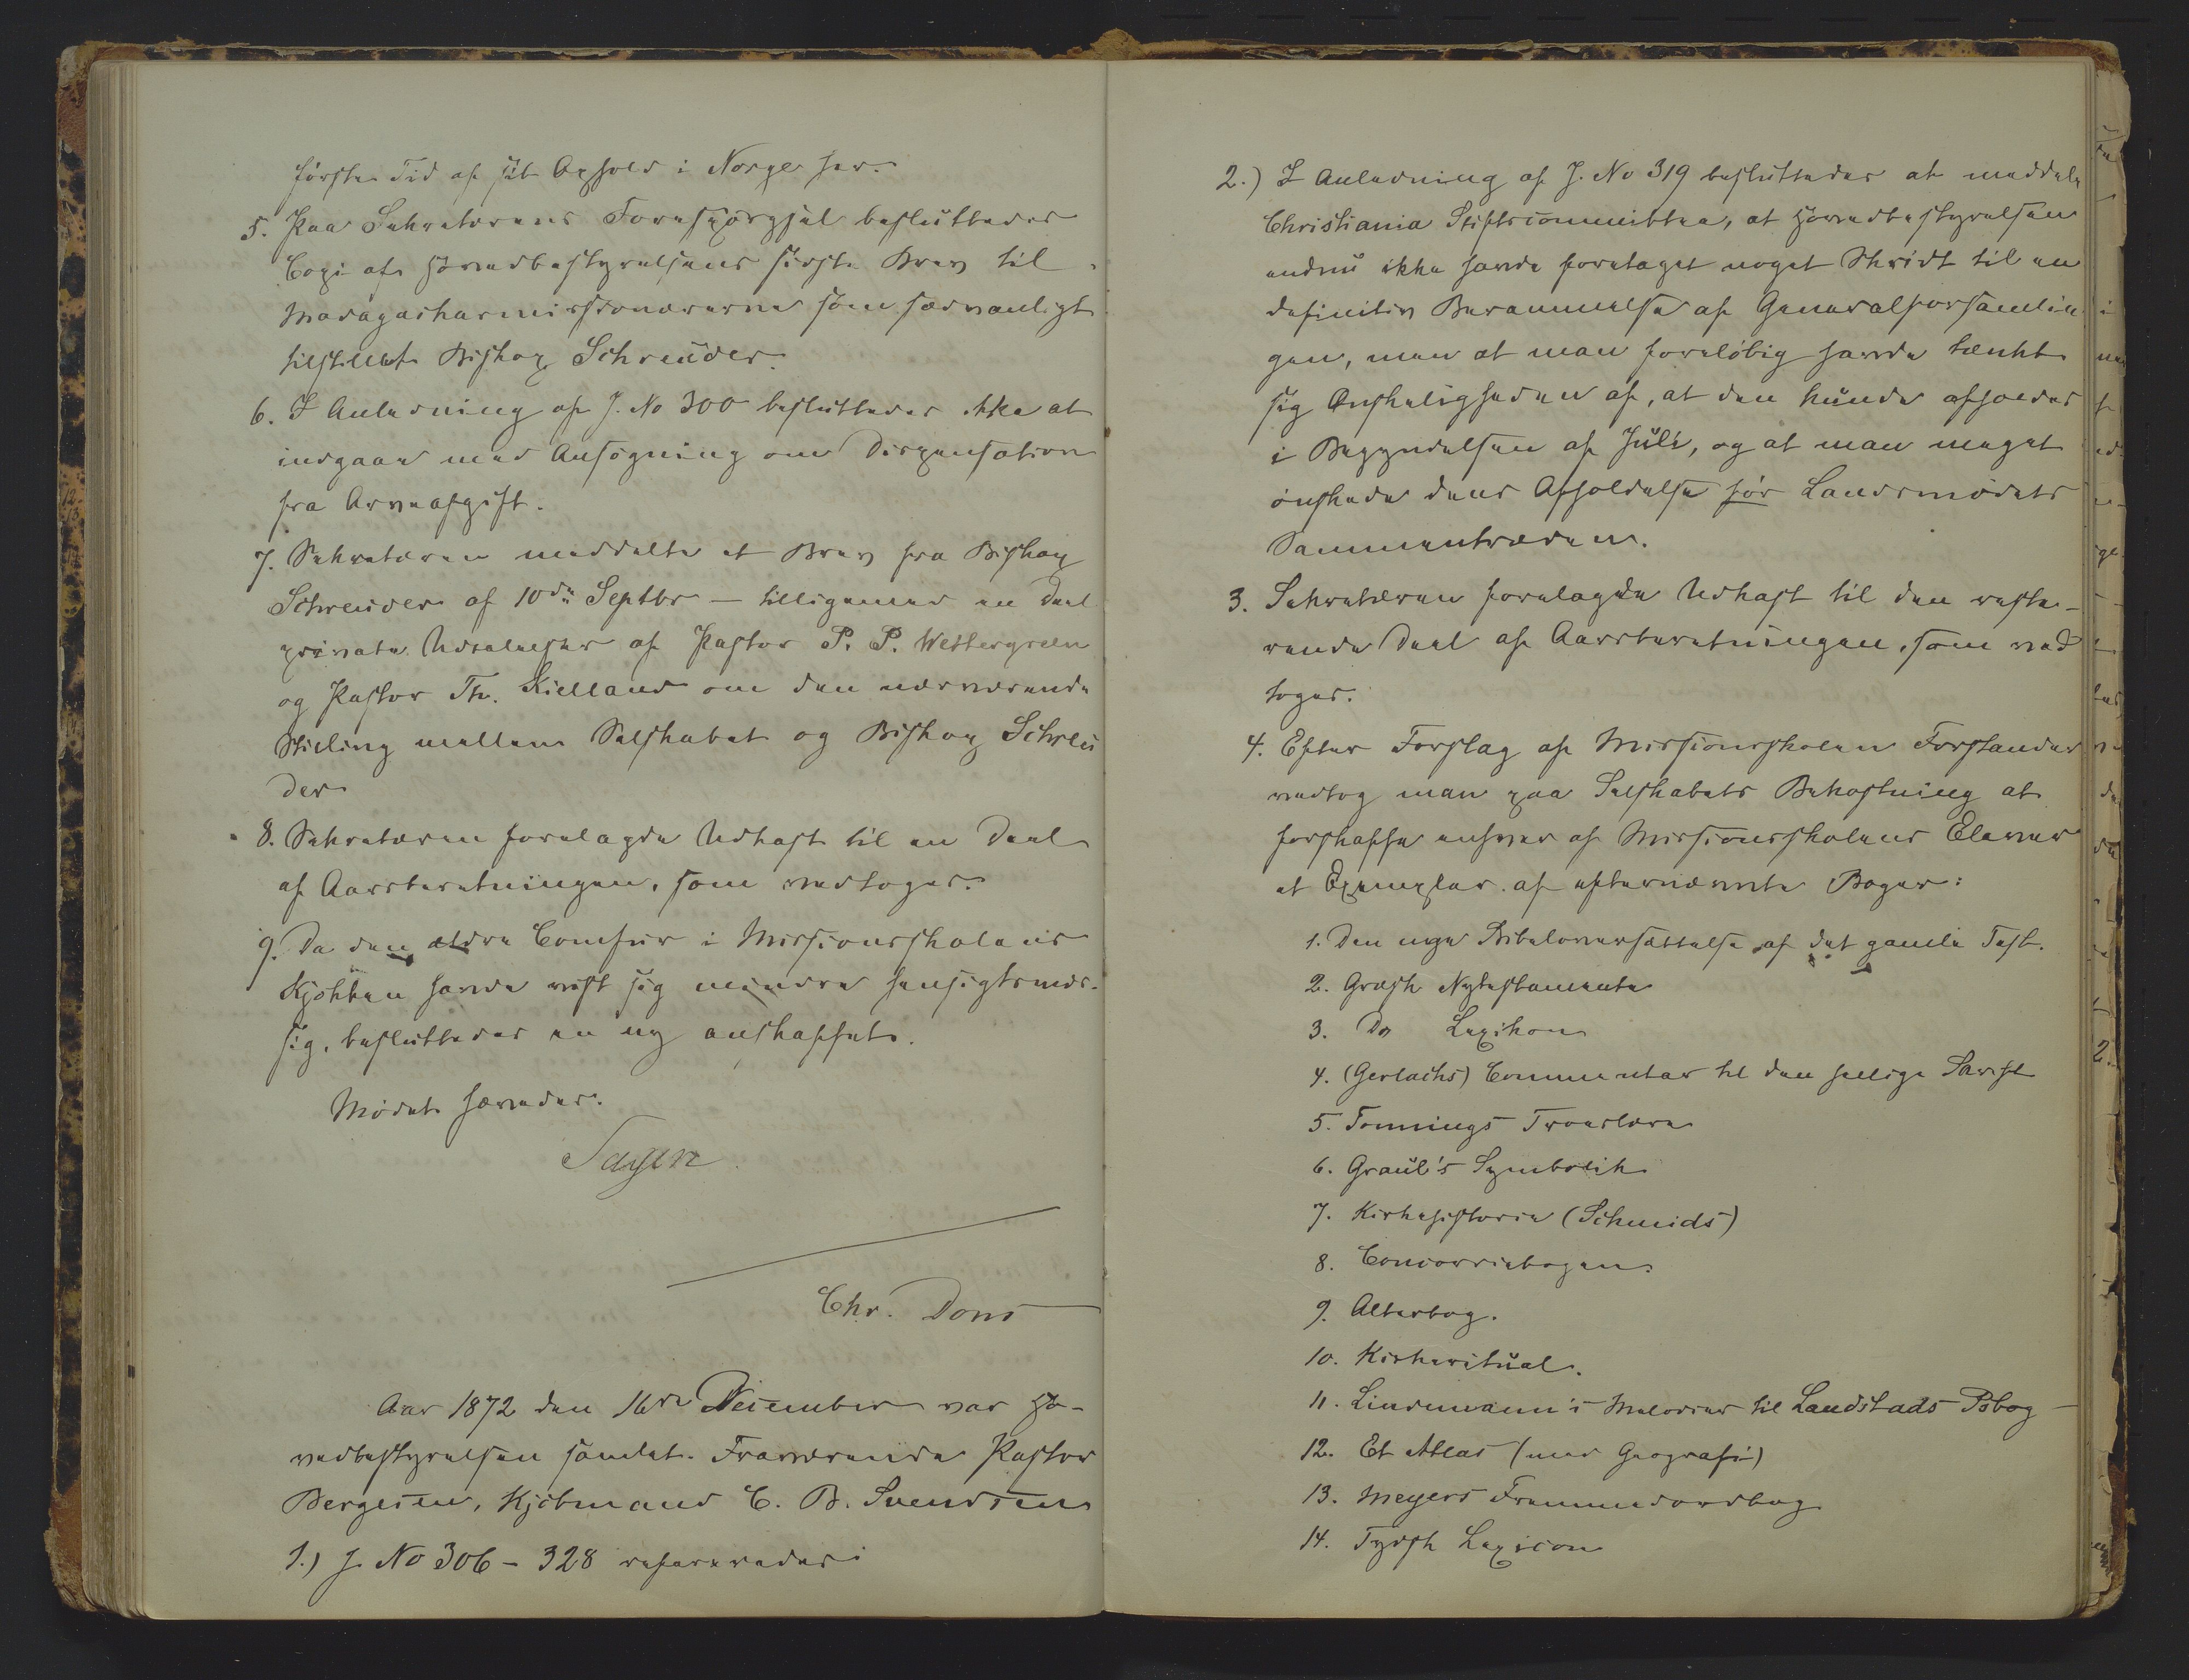 første Tid af sit Ophold i Norge her.
5. Paa Sekretærens Forespørgsel besluttedes
Copi af Hovedbestyrelsens sidste Brev til
Madagaskarmissionærerne som sædvanligt
tilstillet Biskop Schreuder.
6. I Anledning af J. No 300 besluttedes ikke at
indgaae med Ansøgning om Dispensation
fra Arveafgift.
7. Sekretæren meddelte et Brev fra Biskop
Schreuder af 10de Septbr — tilligemed en Deel
private Udtalelser af Pastor P. P. Wettergreen
og Pastor Th. Kielland om den nærværende
Stilling mellem Selskabet og Biskop Schreu
der
8. Sekretæren forelagde Udkast til en Deel
af Aarsberetningen, som vedtoges.
9. Da den ældre Comfur i Missionsskolens
Kjøkken havde vist sig mindre hensigtsmæs-
sig, besluttedes en ny anskaffet.
Mødet hævedes.
Chr. Dons
Aar 1872 den 16de December var Ho-
vedbestyrelsen samlet. Fraværende Pastor
Bergesen, Kjøbmand C. B. Svendsen
1.) J. No 306 – 328 refereredes
2.) I Anledning af J. No 319 besluttedes at meddele
Christiania Stiftscommittee, at Hovedbestyrelsen
endnu ikke havde foretaget noget Skridt til en
definitiv Berammelse af Generalforsamlin
gen, men at man foreløbig havde tænkt
sig Ønskeligheden af, at den kunde afholdes
i Begyndelsen af Juli, og at man meget
ønskede dens Afholdelse før Landsmødets
Sammentræden.
3. Sekretæren forelagde Udkast til den reste-
rende Deel af Aarsberetningen, som ved
toges.
4. Efter Forslag af Missionsskolen Forstander
vedtog man paa Selskabets Bekostning at
forskaffe enhver af Missionsskolens Elever
et Exemplar af efternævnte Bøger:
1. Den nye Bibeloversættelse af det gamle Test.
2. Græsk Nytestamente
3. Do Lexikon
4. (Gerlachs) Commentar til den hellige Skrift
5. Tonnings Troeslære
6. Graul's Symbolik
7. Kirkehistorie (Schmids)
8. Concordiebogen
9. Alterbog.
10. Kirkeritual.
11. Lindemann's Melodier til Landstads Psbog
12. Et Atlas (med Geografi)
13. Meyers Fremmedordbog
14. Tydsk Lexicon